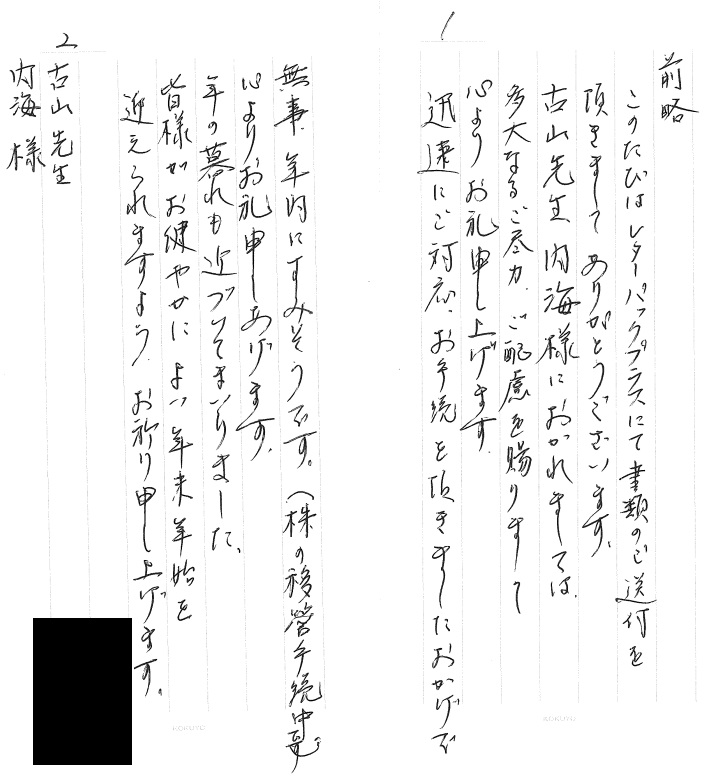 1
前略
このたびはレターパックプラスにて書類のご送付を
頂きまして ありがとうございます。
古山先生 内海様におかれましては、
多大なるご尽力、ご配慮を賜りまして
心よりお礼申し上げます。
迅速にご対応、お手続を頂きましたおかげで
KOKUYO
2
無事、年内にすみそうです。(株の移管手続中です)
心よりお礼申しあげます。
年の暮れも近づいてまいりました。
皆様がお健やかに よい年末年始を
迎えられますよう、お祈り申し上げます。
古山先生
内海様
KOKUYO